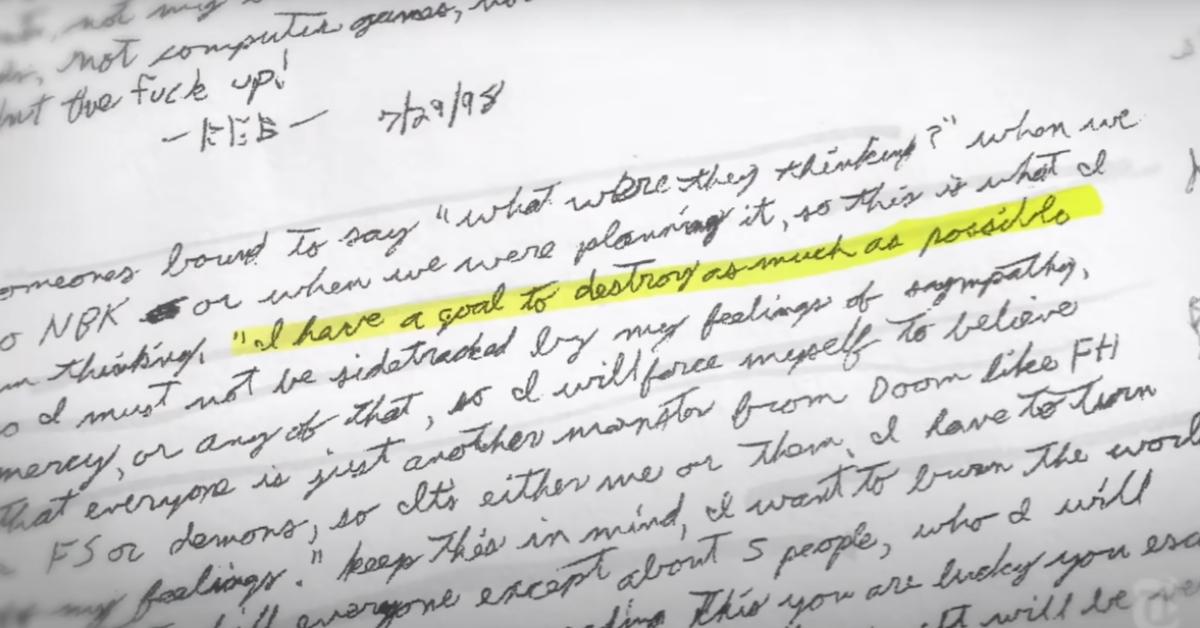 not my
not computer games,
the fuck up!
- REB - 7/29/98
someones bound to say "what were they thinking?" when we
NBK or when we were planning it, so this is what I
thinking. "I have a goal to destroy as much as possible
so I must not be sidetracked by my feelings of sympathy,
mercy, or any of that, so I will force myself to believe
that everyone is just another monster from Doom like FH
FS or demons, so It's either me or them. I have to turn
my feelings." keep this in mind, I want to burn the world
kill everyone except about 5 people, who I will
this you are lucky you
will be